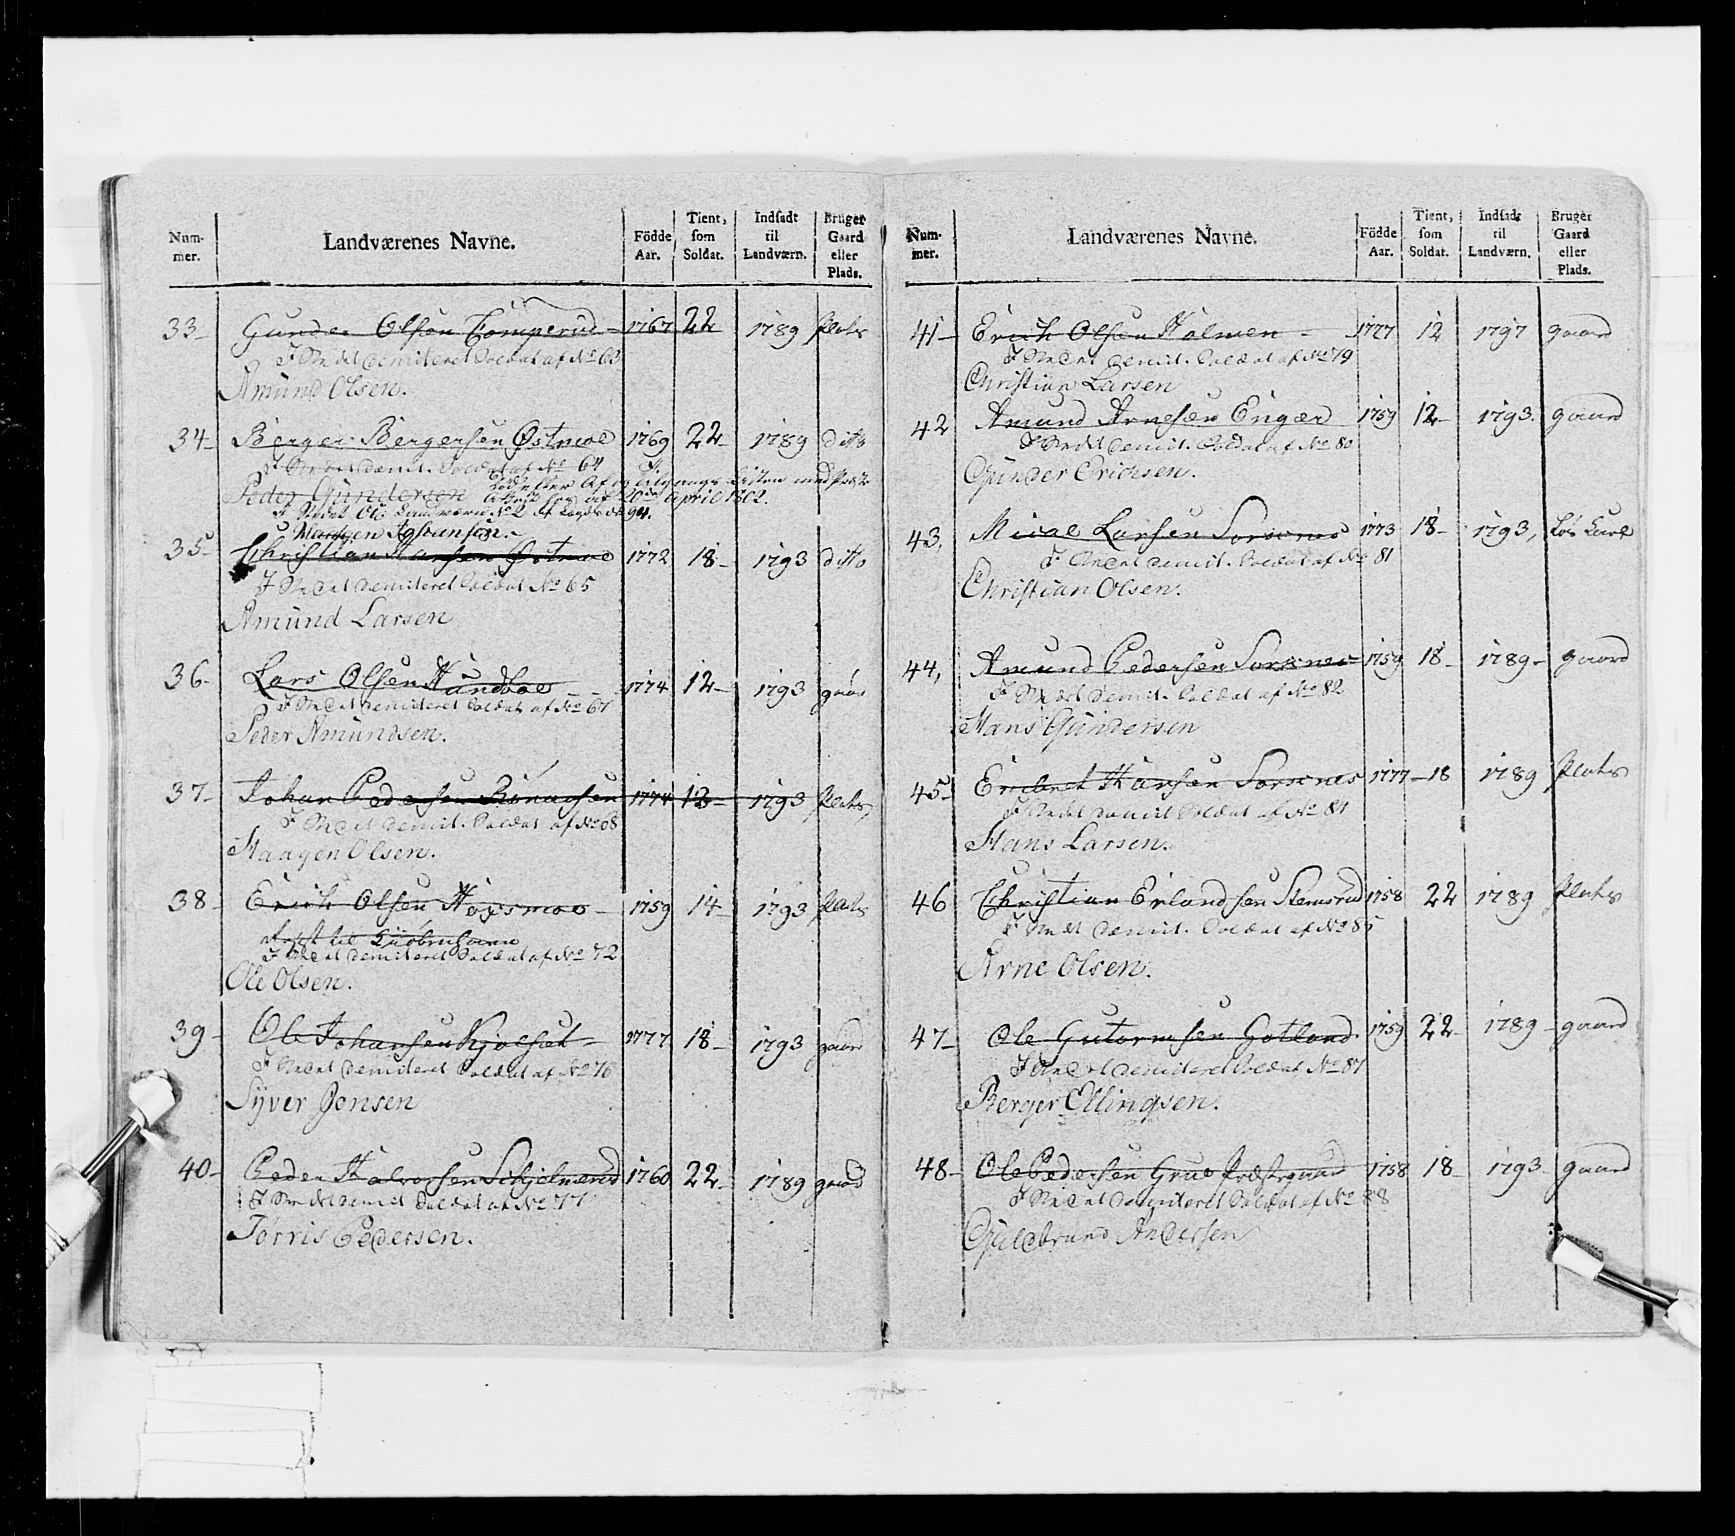 Num-
mer.
Landværenes Navne.
Födde
Aar.
Tient,
som
Soldat.
Indsadt
til
Landværn.
Bruger
Gaard
eller
Plads.
33- Gunder Olsen 1767 22 1789 Plads
I Stedet demiteret Soldat af No 63
Amund Olsen.
34- Berger Bergersen Østmoe 1769 22 1789 ditto
I Stedet demit. Soldat af No 64
Peder Gundersen
20de April 1802.
I Stedet Ole Landværn No 2
Haagen Johansen.
35- Christian Hansen Østmoe 1772 18- 1793 ditto
I Stedet demiteret Soldat No 65
Amund Larsen
36- Lars Olsen Hundboe 1774 12- 1793 gaar
I Stedet demiteret Soldat af No 67
Peder Amundsen.
37- Johan Pedersen 1774 12- 1793 Plads
I Stedet demit. Soldat af No 68
Haagen Olsen.
38- Erich Olsen 1759 14- 1793 Plads
til
I Stedet demiteret Soldat af No 72
Ole Olsen.
39- Ole Johansen Kjølset 1777 18- 1793 gaard
I Stedet demiteret Soldat af No 76
Syver Jonsen
40- Peder Halvorsen 1760 22- 1789 gaard
I Stedet demit Soldat af No 77
Torris Pedersen.
Num-
mer.
Landværenes Navne.
Födde
Aar.
Tient,
som
Soldat.
Indsadt
til
Landværn.
Bruger
Gaard
eller
Plads.
41- Erich Olsen Holmen 1727 12 1797 gaard
I Stedet demit. Soldat af No 79
Christian Larsen
42 Amund Arnesen Enger 1759 12- 1793. gaard
I Stedet demit. Soldat af No 80
Gunder Erichsen.
43, Larsen Sorsnes 1773 18- 1793, Løs Karl
I Stedet demit. Soldat af No 81
Christian Olsen.
44, Amund Pedersen Sorsnes 1759 18- 1789- gaard
I Stedet demit. Soldat af No 82
Hans Gundersen
45- Hansen Sorsnes 1777-18 1789 Plads
I Stedet demit Soldat af No 84
Hans Larsen.
46 Christian Erlandsen Stemsrud 1758 22 1789 Plads
I Stedet demit. Soldat af No 85
Arne Olsen.
47- Ole Gutormsen Gotland 1759 22- 1789- gaard
I Stedet demiteret Soldat No 87
Berger Ellingsen.
48- Ole Pedersen Grue Præstegaard 1758 18- 1793- gaard
I Stedet demiteret Soldat af No 88
Gulbrand Andersen